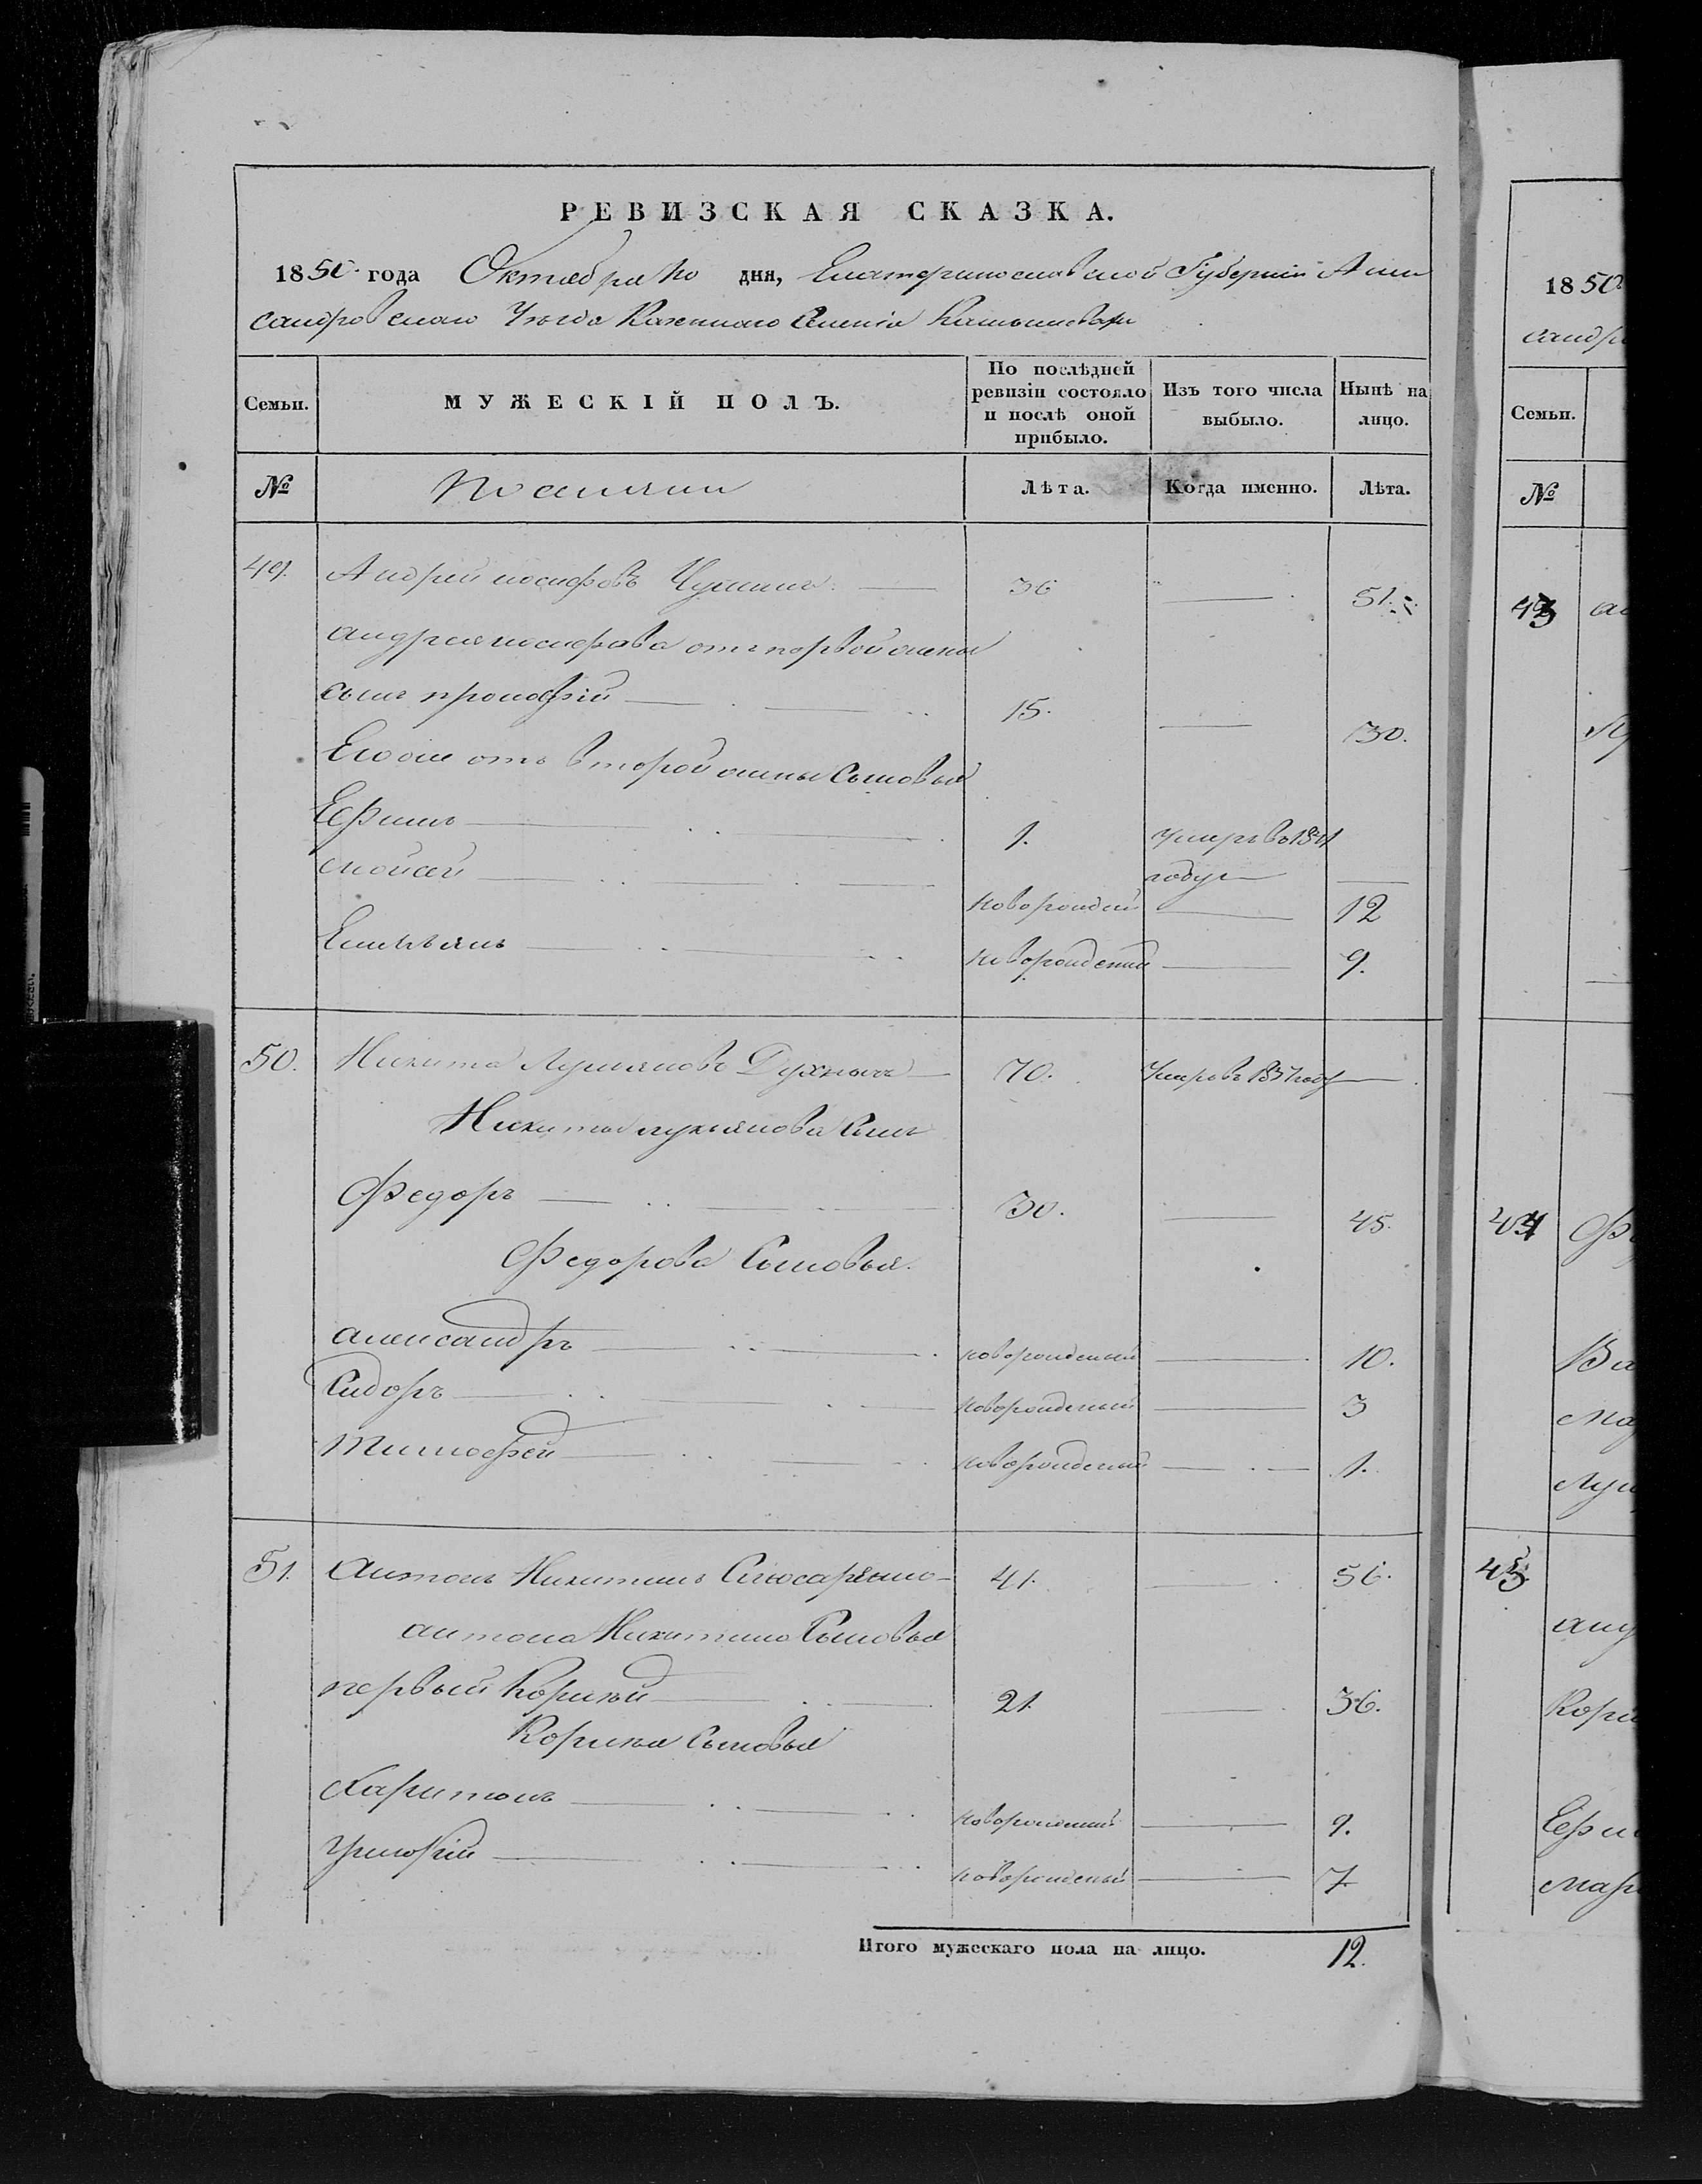 РЕВИЗСКАЯ СКАЗКА.
1850 года Октября 10 дня, Екатеринославской Губернии Алек
сандровскаго Уезда Казеннаго Селенія
Семьи. МУЖЕСКІЙ ПОЛЪ. По послѣдней ревизіи состояло и послѣ оной прибыло. Изъ того числа выбыло. Нынѣ на лицо.
№ Поселяни Лѣта. Когда именно. Лѣта.
49. Андрей иосифовъ 36 51.
андрея иосифова отъ первой жены
сынъ прокофій 15. 30.
Его же отъ второй жены Сыновья
Ефимъ 1. умеръ въ 1841
году
мойсей новорожден 12
Емильянъ новорожденый 9.
50. Никита Лукьяновъ 70. Умеръ в 1837 году
Никиты лукьянова Сынъ
Федоръ 30. 45.
Федорова Сыновья.
александръ новорожденый 10.
Сидоръ новорожденый 3
Тимофей новорожденый 1.
51. Антонъ Никитинъ Слюсаренко 41. 56.
антона Никитина Сыновья
первый Корнѣй 21. 36.
Корнѣя Сыновья
Харитонъ новорожденый 9.
новорожденый 7
Итого мужескаго пола на лицо. 12.
1850
сандр
Семьи.
№
Ва
Ефи